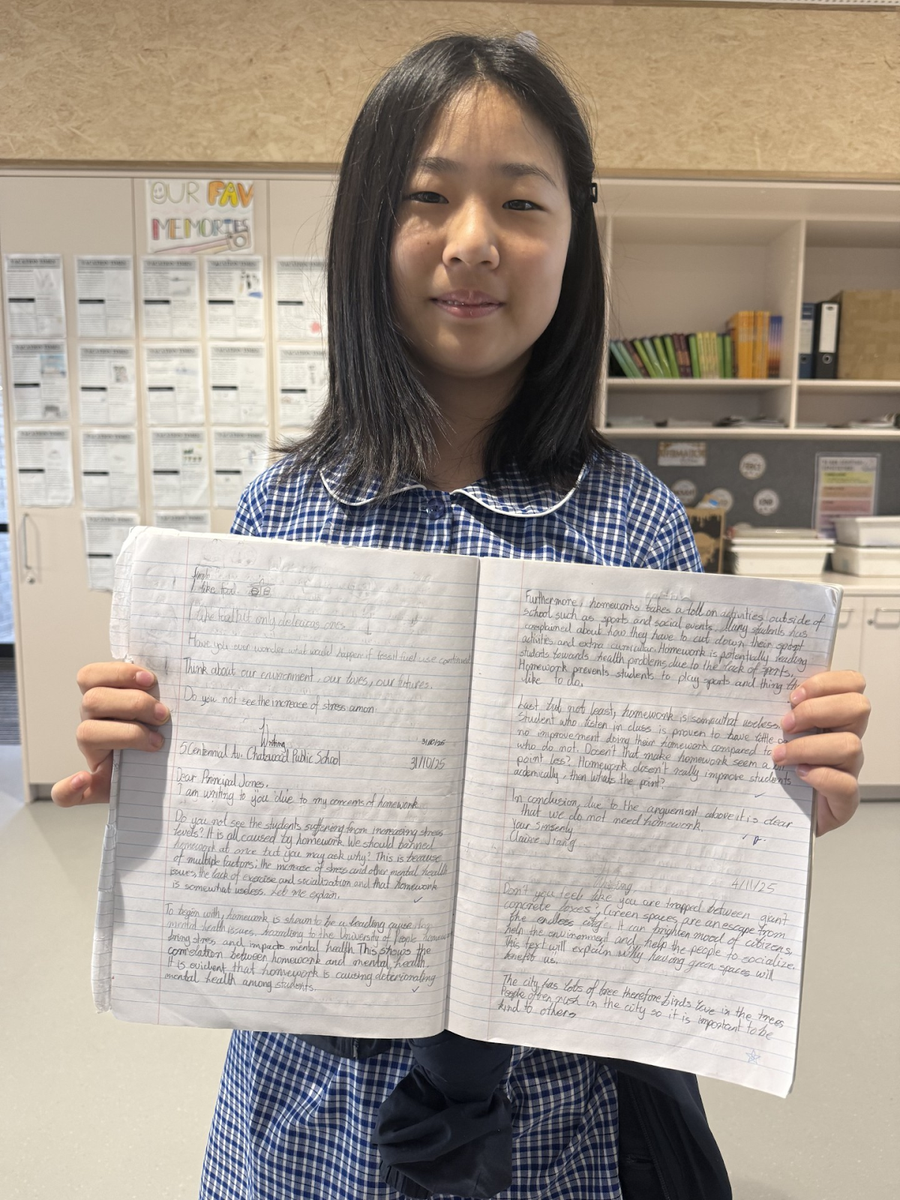 OUR FAV
MEMORIES
I like food.
I like food but only delicious ones.
Have you ever wonder what would happen if fossil fuel use continued
Think about our environment, our lives, our futures.
Do you not see the increase of stress amon
Writing
31/10/25
5 Centennial Av. Chatswood Public School
31/10/25
Dear Principal Jones,
I am writing to you due to my concerns of homework.
Do you not see the students suffering from increasing stress
levels? It is all caused by homework. We should banned
homework at once but you may ask why? This is because
of multiple factors; the increase of stress and other mental health
issues, the lack of exercise and socialization and that homework
is somewhat useless. Let me explain.
To begin with, homework is shown to be a leading cause of
mental health issues. According to the University of People, homework
bring stress and impacts mental health. This shows the
correlation between homework and mental health.
It is evident that homework is causing deteriorating
mental health among students.
Furthermore, homeworks takes a toll on activities outside of
school such as sports and social events. Many students has
complained about how they have to cut down their sport
activities and extra curricular. Homework is potentially leading
students towards health problems due to the lack of sports.
Homework prevents students to play sports and thing they
like to do.
Last but not least, homework is somewhat useless.
Student who listen in class is proven to have little or
no improvement doing their homework compared to
who do not. Doesn't that make homework seem a
point less? Homework doesn't really improve students
academically, then whats the point?
In conclusion, due to the anguement above it is clear
that we do not need homework.
Your Sinserly
4/11/25
Don't you feel like you are trapped between giant
concrete boxes? Green spaces are an escape from
the endless city. It can brighten mood of citizens,
help the environment and help the people to socialize.
This text will explain why having green spaces will
benefit us.
The city has lots of tree therefore birds live in the trees
People often rush in the city so it is important to be
kind to others